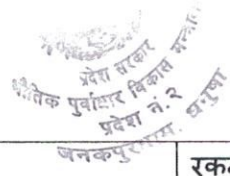 प्रदेश सरकार
भौतिक पूर्वाधार विकास मन्त्रा
प्रदेश नं. २
जनकपुरधाम, धनुषा
रकम